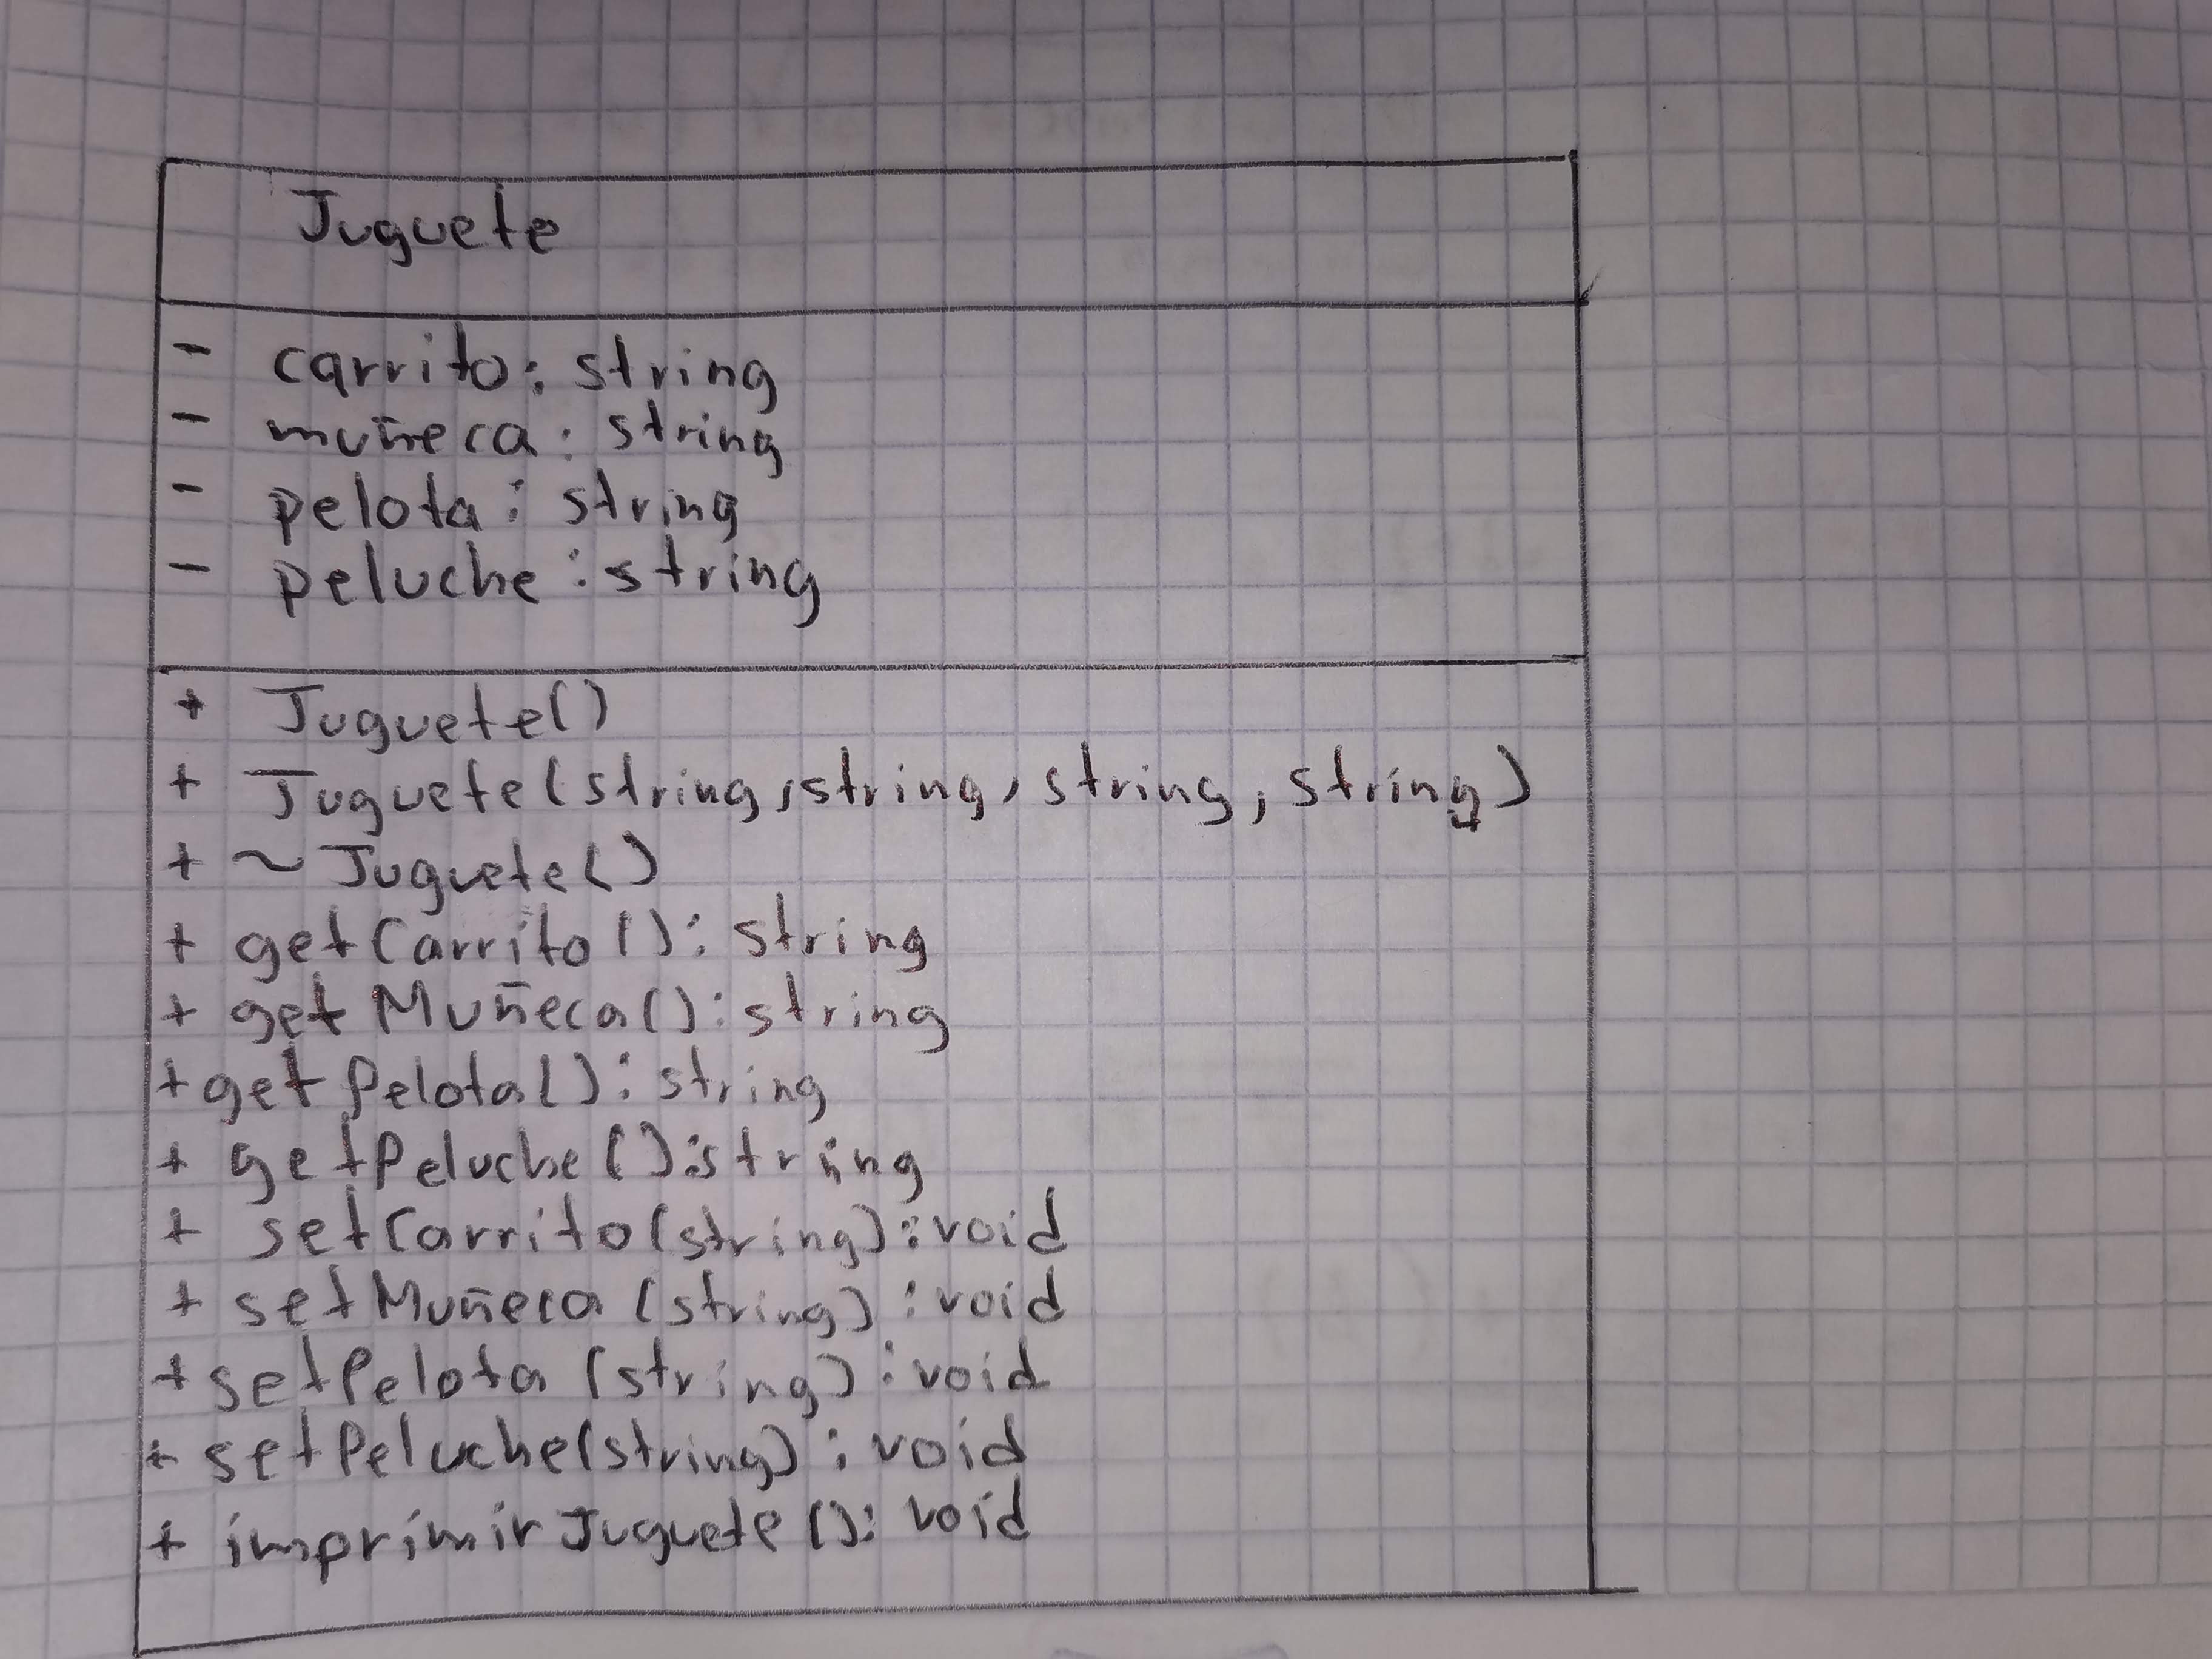 Juguete
- carrito: string
- muñeca: string
- pelota: string
- peluche: string
+ Juguete()
+ Juguete(string,string, string, string)
+ ~Juguete()
+ getCarrito(): string
+ getMuñeca(): string
+ getPelota(): string
+ getPeluche(): string
+ setCarrito(string): void
+ setMuñeca(string): void
+ setPelota(string): void
+ setPeluche(string): void
+ imprimirJuguete(): void